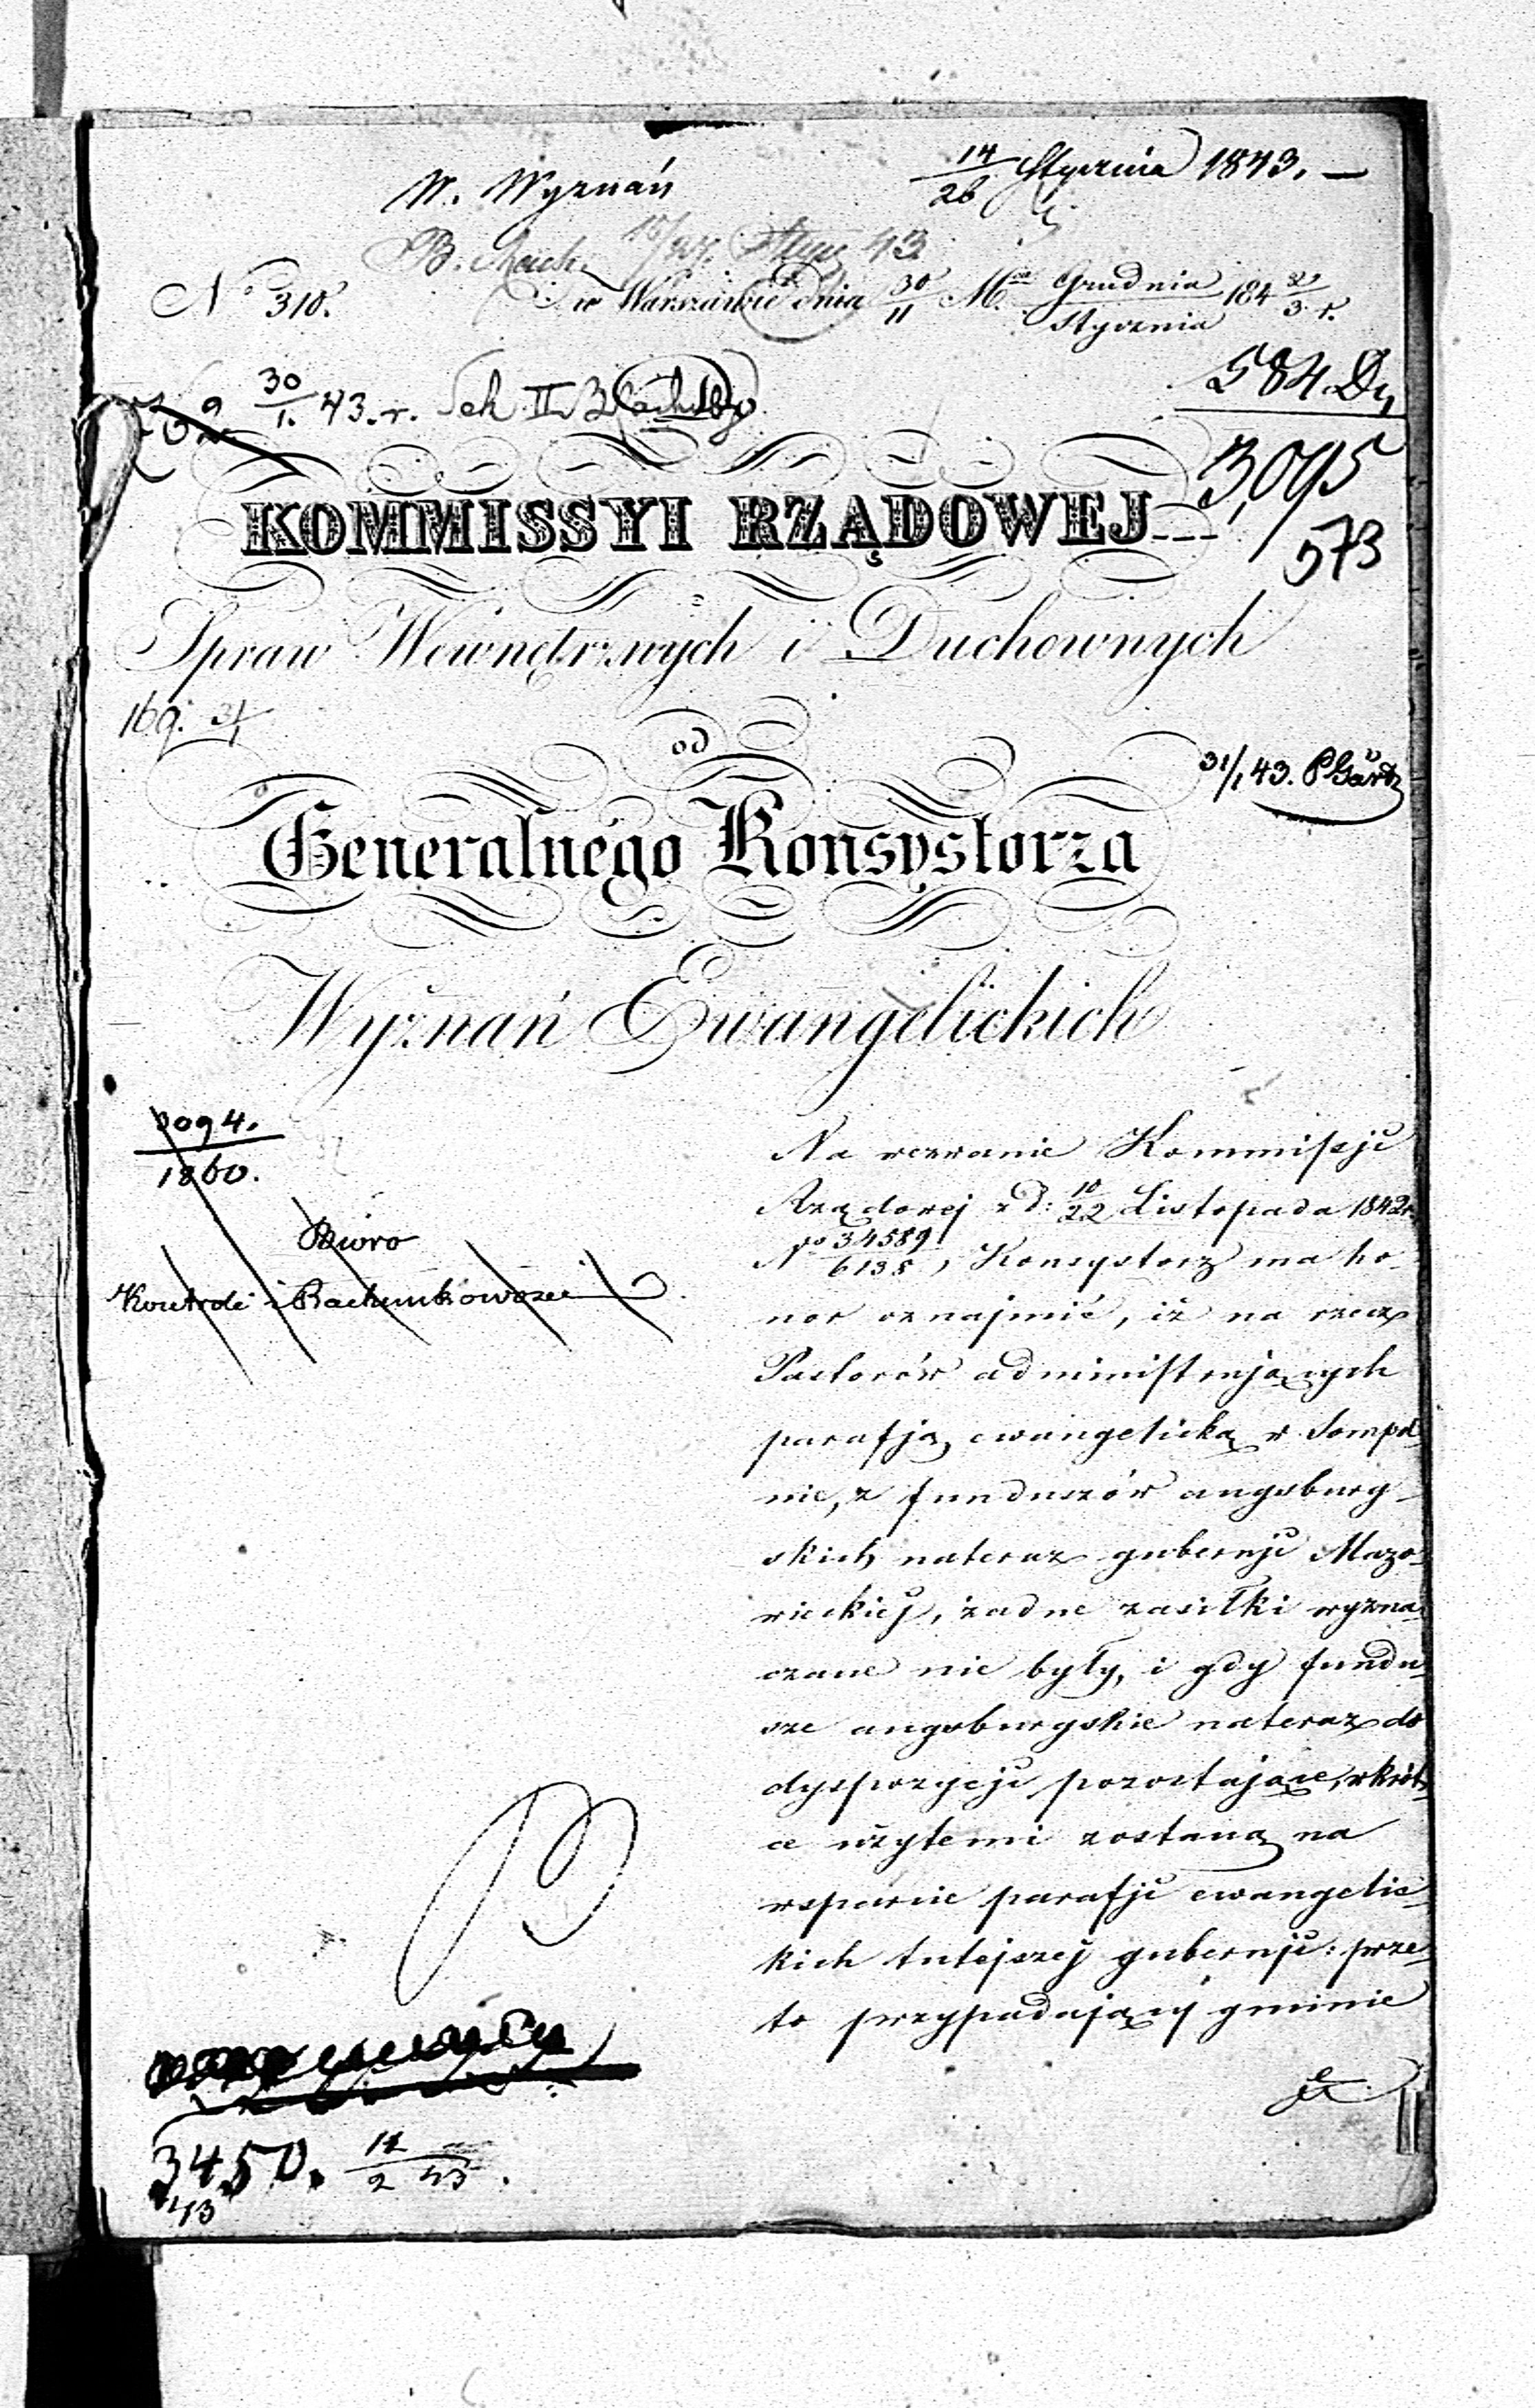 W. Wyznań
14/26 Stycznia 1843. —
B. Rach.
43
N° 310.
w Warszawie dnia 30/11 M. Grudnia/Stycznia 184 2/3 r.
584 D
30/1. 43. r. Sek II
3,095/573
KOMMISSYI RZĄDOWEJ
Spraw Wewnętrznych i Duchownych
169. 31/1
od
31/1 43. P Gärtz
Generalnego Konsystorza
Wyznań Ewangelickich
3094.
1860.
Biuro
Kontroli i Rachunkowości
Na wezwanie Kommissji
Rządowej z d: 10/22 Listopada 1842 r.
N° 34589/6135, Konsystorz ma ho-
nor oznajmić, iż na rzecz
Pastorów administrujących
parafją ewangelicką w Sompol-
nie, z funduszów augsburg-
skich nateraz gubernji Mazo-
wieckiej, żadne zasiłki wyzna-
czane nie były, i gdy fundu-
sze augsburgskie nateraz do
dyspozycji pozostające, wkrót-
ce użytemi zostaną na
wsparcie parafji ewangelic-
kich tutejszej gubernji: prze-
to przypadający gminie
3450. 12/2 43.
43